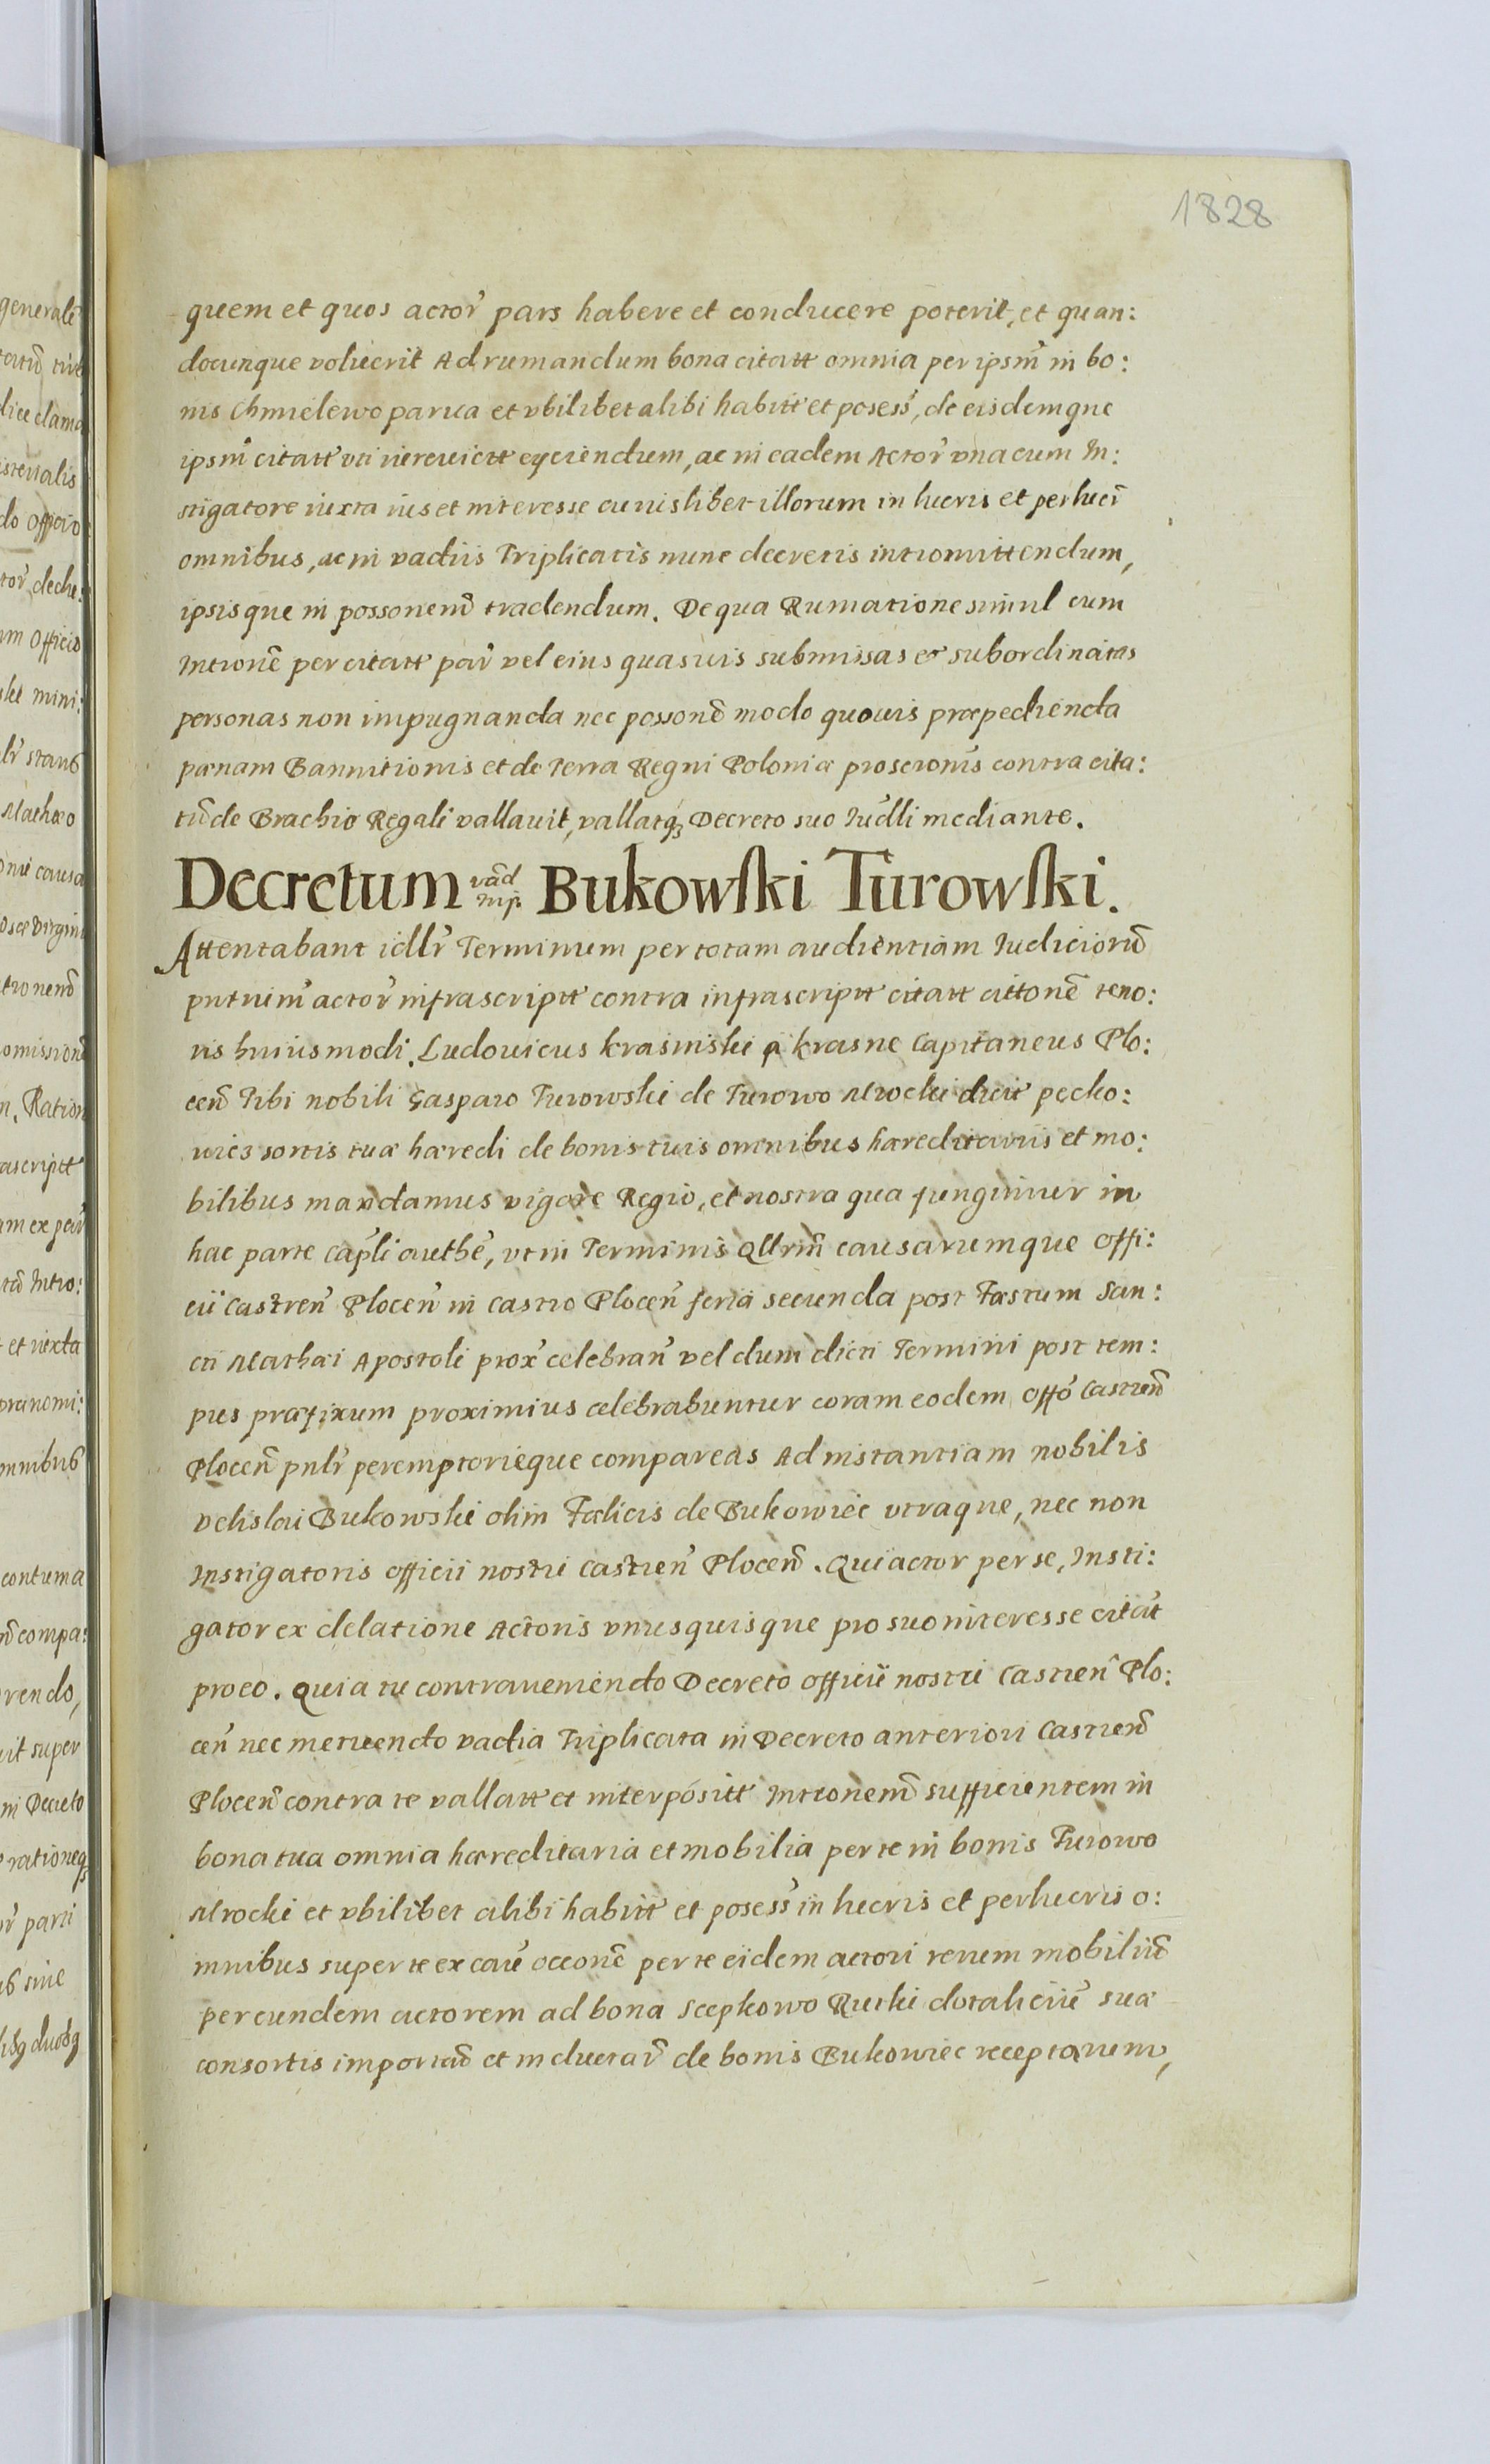 1828
quem et quos actor̃ pars habere et conducere poterit, et quan:
docunque voluerit Ad rumandum bona citatt omnia per ipsm̃ in bo:
nis Chmielewo parua et vbilibet alibi habitt et posess̃, de eisdemque
ipsm̃ citatt vti iurevictt eyciendum, ac in eadem Actor̃ vna cum In:
stigatore iuxta ius et interesse cuiuslibet illorum in lucris et perlucr̃
omnibus, ac in vadiis Triplicatis nunc decretis intromittendum,
ipsisque in possonem̃ tradendum. De qua Rumatione simul cum
Introne̅ per citatt par̃ vel eius quasuis submissas et subordinatas
personas non impugnanda nec posson̅e modo quouis præpedienda
pænam Bannitionis et de Terra Regni Poloniæ proscronis̃ contra cita:
tum̃ de Brachio Regali vallavit, vallatq3 Decreto suo Iudlĩ mediante.
Decretum vad̃ inp. Bukowski Turowski.
Attentabant idlr̃ Terminum per totam audientiam Iudiciorum̃
pntium̃ actor̃ infrascriptt contra infrascriptt citatt citton̅e teno:
ris huiusmodi. Ludouicus Krasinski a Krasne Capitaneus Plo:
cen̅ Tibi nobili Gasparo Turowski de Turowo Mrocki dicit pecko:
wicz sortis tuæ hæredi de bonis tuis omnibus hæreditariis et mo:
bilibus mandamus vigore Regio, et nostra qua fungimur in
hac parte caplĩ authẽ, vt in Terminis Qllrm̃ causarumque Offi:
cii castren̅ Plocen̅ in castro Plocen̅ feria secunda post Fæstum San:
cti Mathæi Apostoli prox̃ celebran̅ vel dum dicti Termini post tem:
pus præfixum proximius celebrabuntur coram eodem Offõ Castren̅
Plocen̅ pnlr̃ peremptorieque compareas Ad instantiam nobilis
Velislai Bukowski olim Fælicis de Bukowiec vtraque, nec non
Instigatoris officii nostri castren̅ Plocen̅. Qui actor per se, Insti:
gator ex delatione Actoris vnusquisque pro suo interesse citant̃
pro eo. Quia tu contraueniendo Decreto officii nostri Castren̅ Plo:
cen̅ nec metuendo vadia Triplicata in Decreto anteriori Castren̅
Plocen̅ contra te vallatt et interpositt Intronem̃ sufficientem in
bona tua omnia hæreditaria et mobilia per te in bonis Turowo
Mrocki et vbilibet alibi habitt et posess̃ in lucris et perlucris o:
mnibus super te ex cau̅ occon̅e per te eidem actori rerum mobiliu̅
per eundem actorem ad bona Scepkowo Rutki dotaliciu̅ suæ
consortis importa̅d et inductar̃ de bonis Bukowiec receptarum,